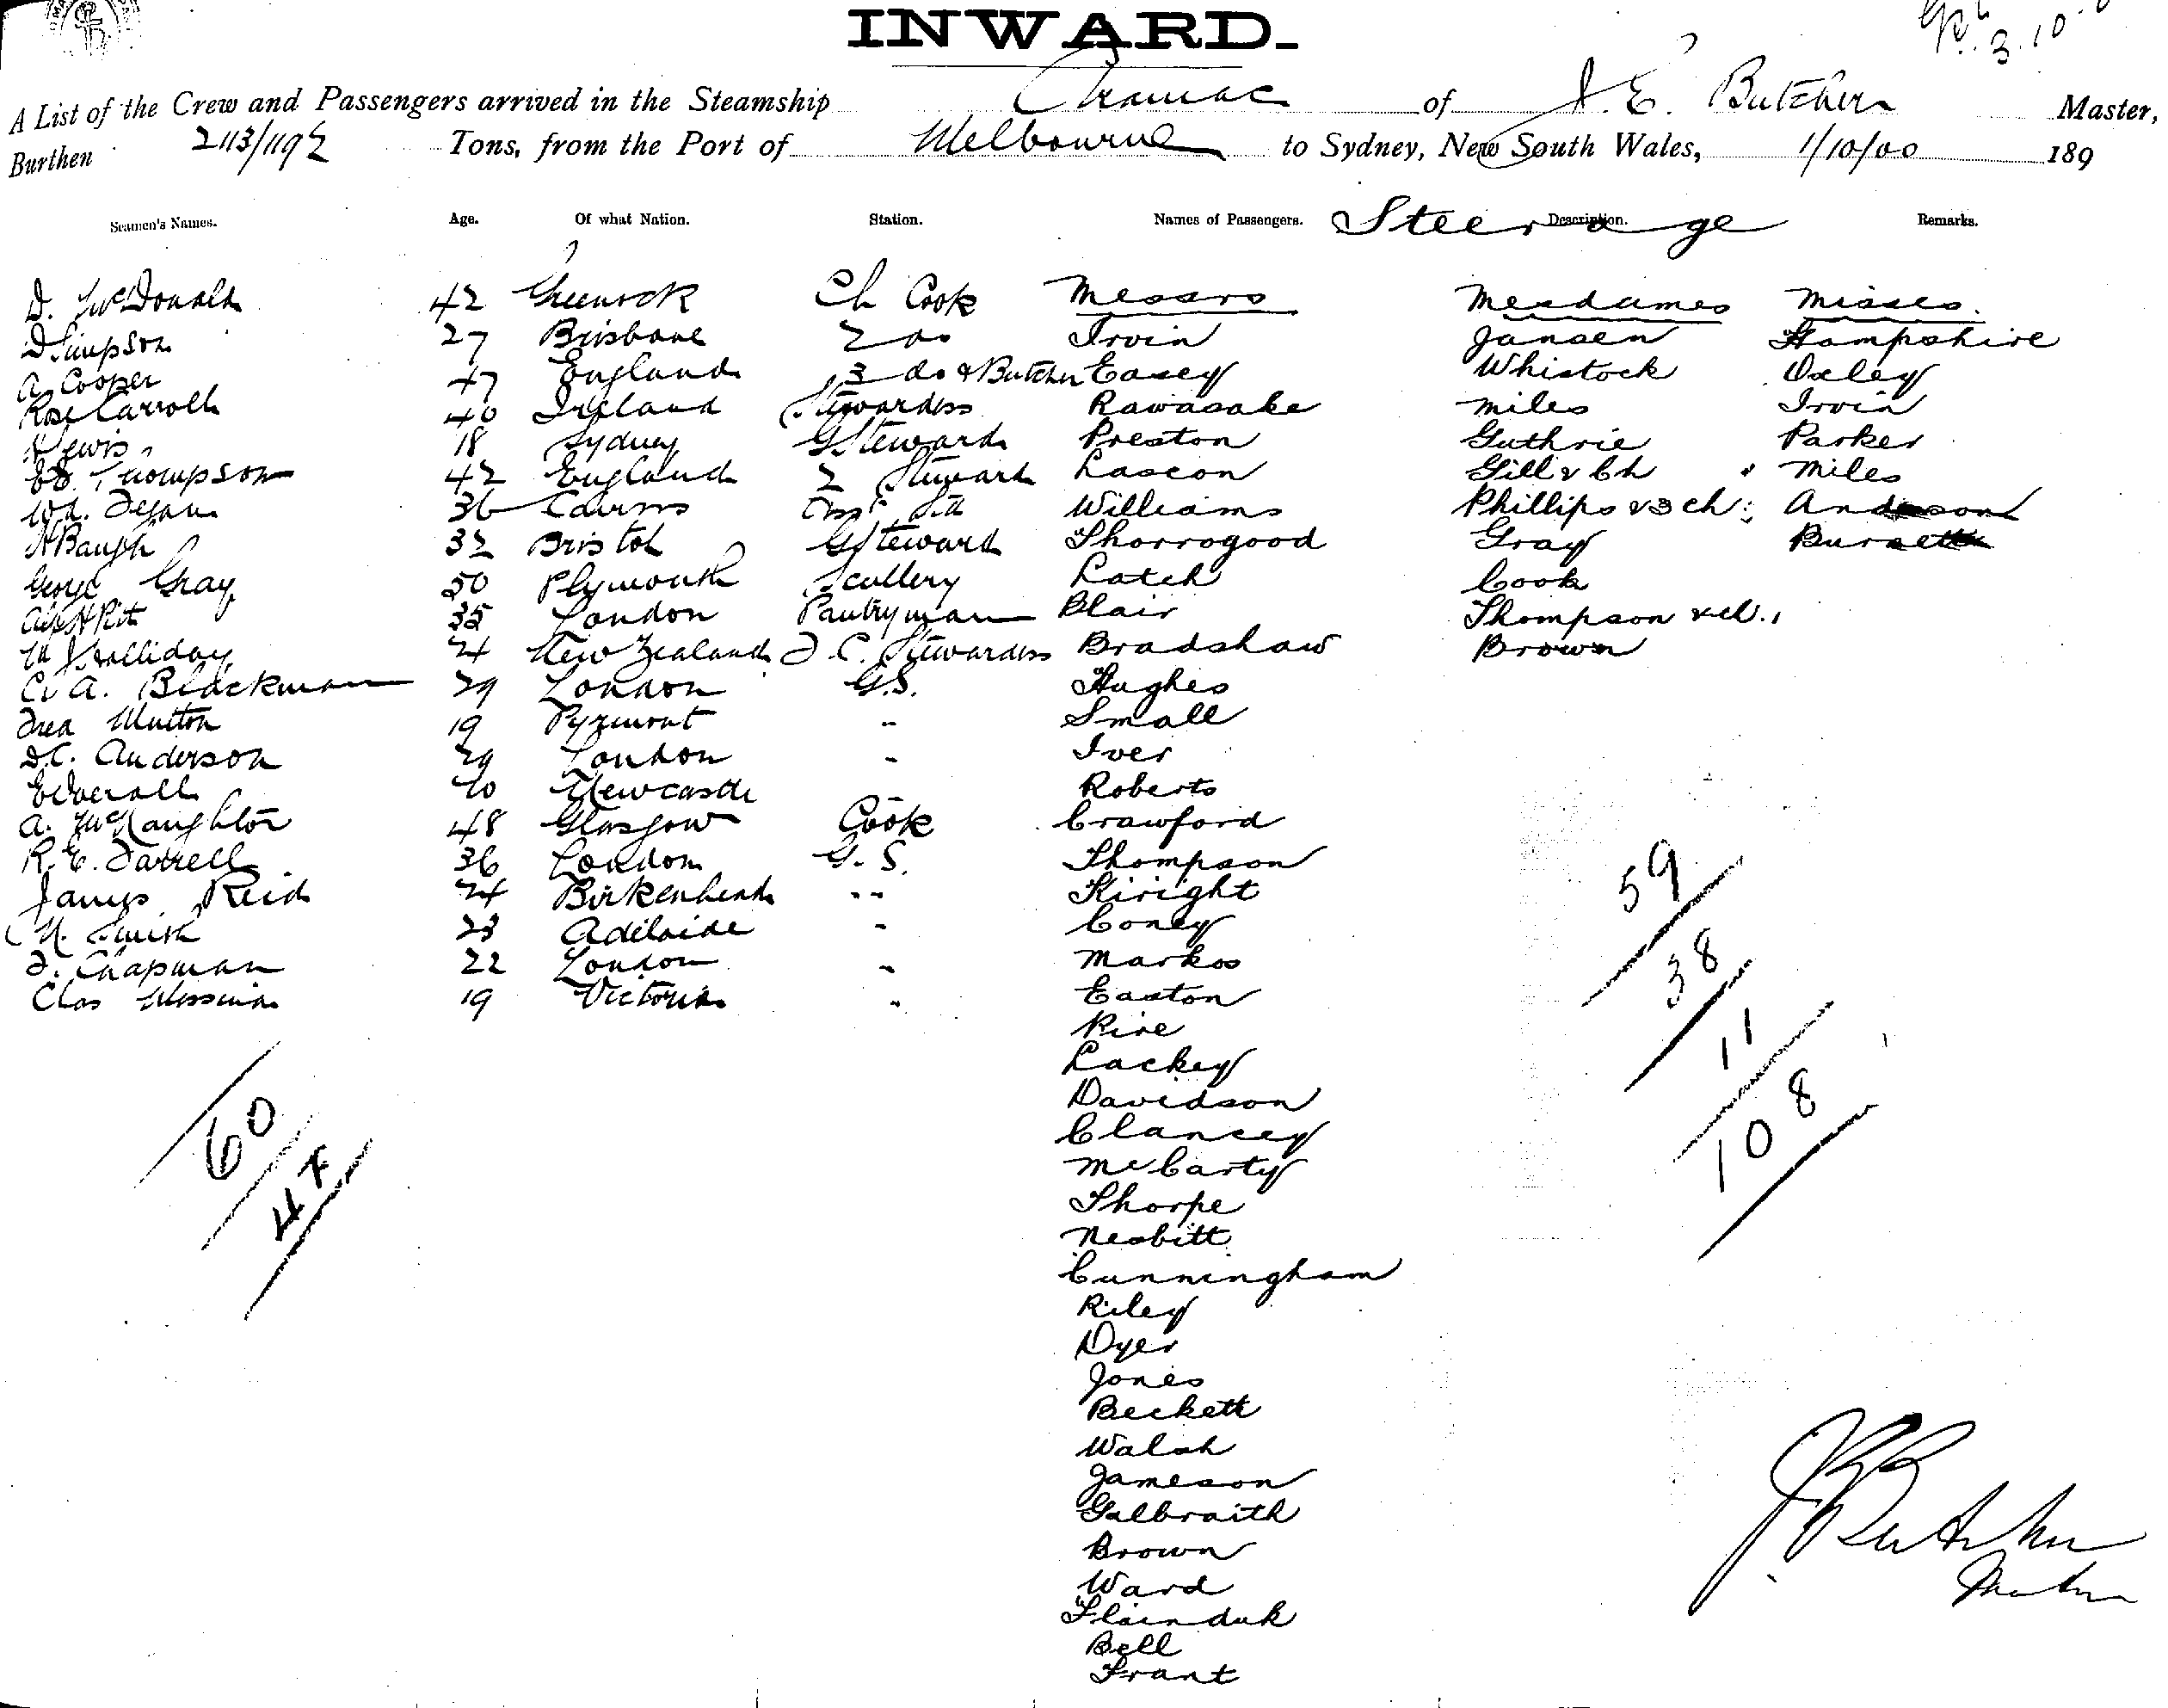 INWARD.
3.10
A List of the Crew and Passengers arrived in the Steamship Aramac of J. E. Butcher Master,
Burthen 2113/1192 Tons, from the Port of Melbourne to Sydney, New South Wales, 1/10/00 189
Seamen's Names. Age. Of what Nation. Station. Names of Passengers. Steerage Description. Remarks.
D. McDonald 42 Greenock Ch Cook Messrs Mesdames Misses.
D Simpson 27 Brisbane 2 do Irvin Jansen Hampshire
A. Cooper 47 England 3 do & Butcher Easey Whistock Oxley
Rose Carroll 40 Ireland Stewardess Rawasake Miles Irvin
A Lewis 18 Sydney G Steward Preston Guthrie Parker
Thompson 42 England 2 Steward Lascon Gill & Ch Miles
36 Cairns Williams Phillips & 3 ch: Anderson
H Baugh 32 Bristol G Steward Thorrogood Gray
George Gray 50 Plymouth Scullery Latch Cook
35 London Pantryman Blair Thompson & ch.
Holliday 24 New Zealand F. C. Stewardess Bradshaw Brown
C. A. Blackman 29 London G.S. Hughes
Fred Mutton 19 Pyrmont " Small
D.C. Anderson 29 London " Iver
E Overall 20 Newcastle " Roberts
A. McNaughton 48 Glasgow Cook Crawford
R. E. Farrell 36 London G. S. Thompson
James Reid 24 Birkenhead " Kiright
N. Smith 23 Adelaide " Coney
F. Chapman 22 London " Markos
Chas 19 Victoria " Easton
Rire
Lackey
Davidson
Clancey
McCarty
Thorpe
Nesbitt
Cunningham
Riley
Dyer
Jones
Beckett
Walsh
Jameson
Galbraith
Brown
Ward
Bell
Frant
60
47
59
38
11
108
J. E. Butcher
Master